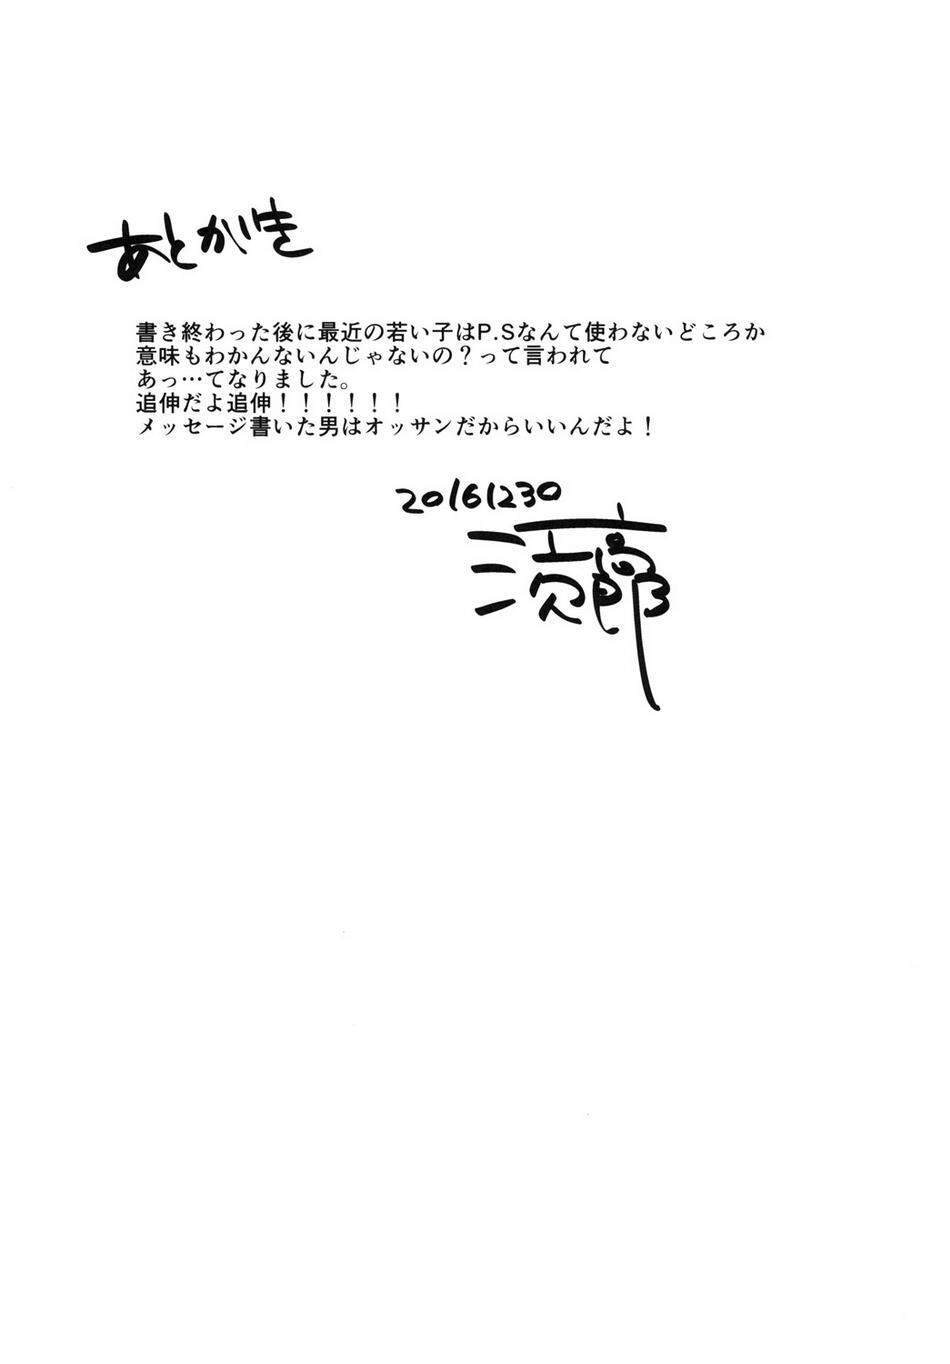 あとがき
書き終わった後に最近の若い子はP.Sなんて使わないどころか
意味もわかんないんじゃないの？って言われて
あっ…てなりました。
追伸だよ追伸！！！！！！
メッセージ書いた男はオッサンだからいいんだよ！
20161230